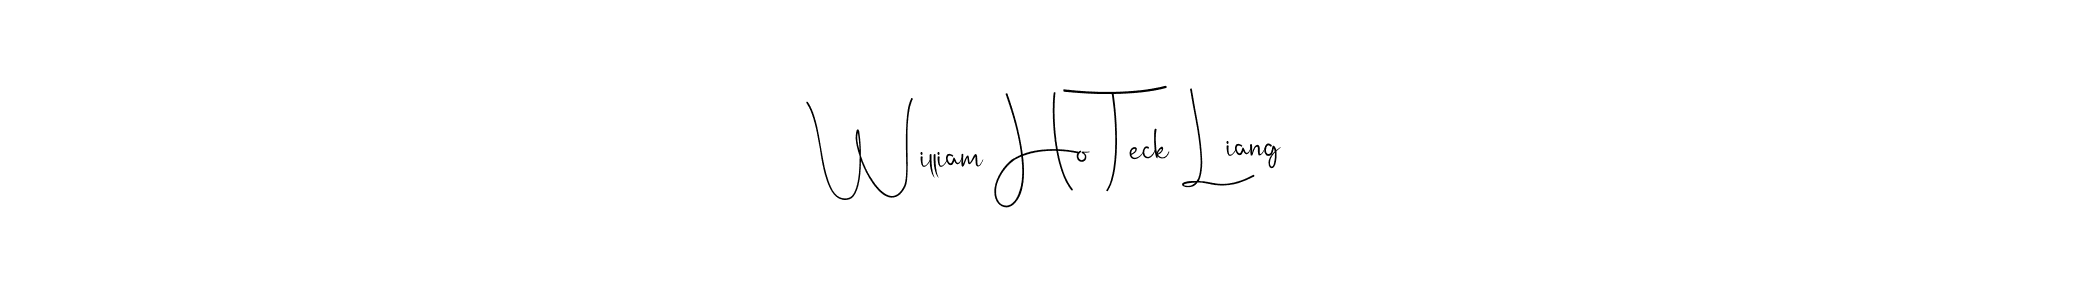 William Ho Teck Liang